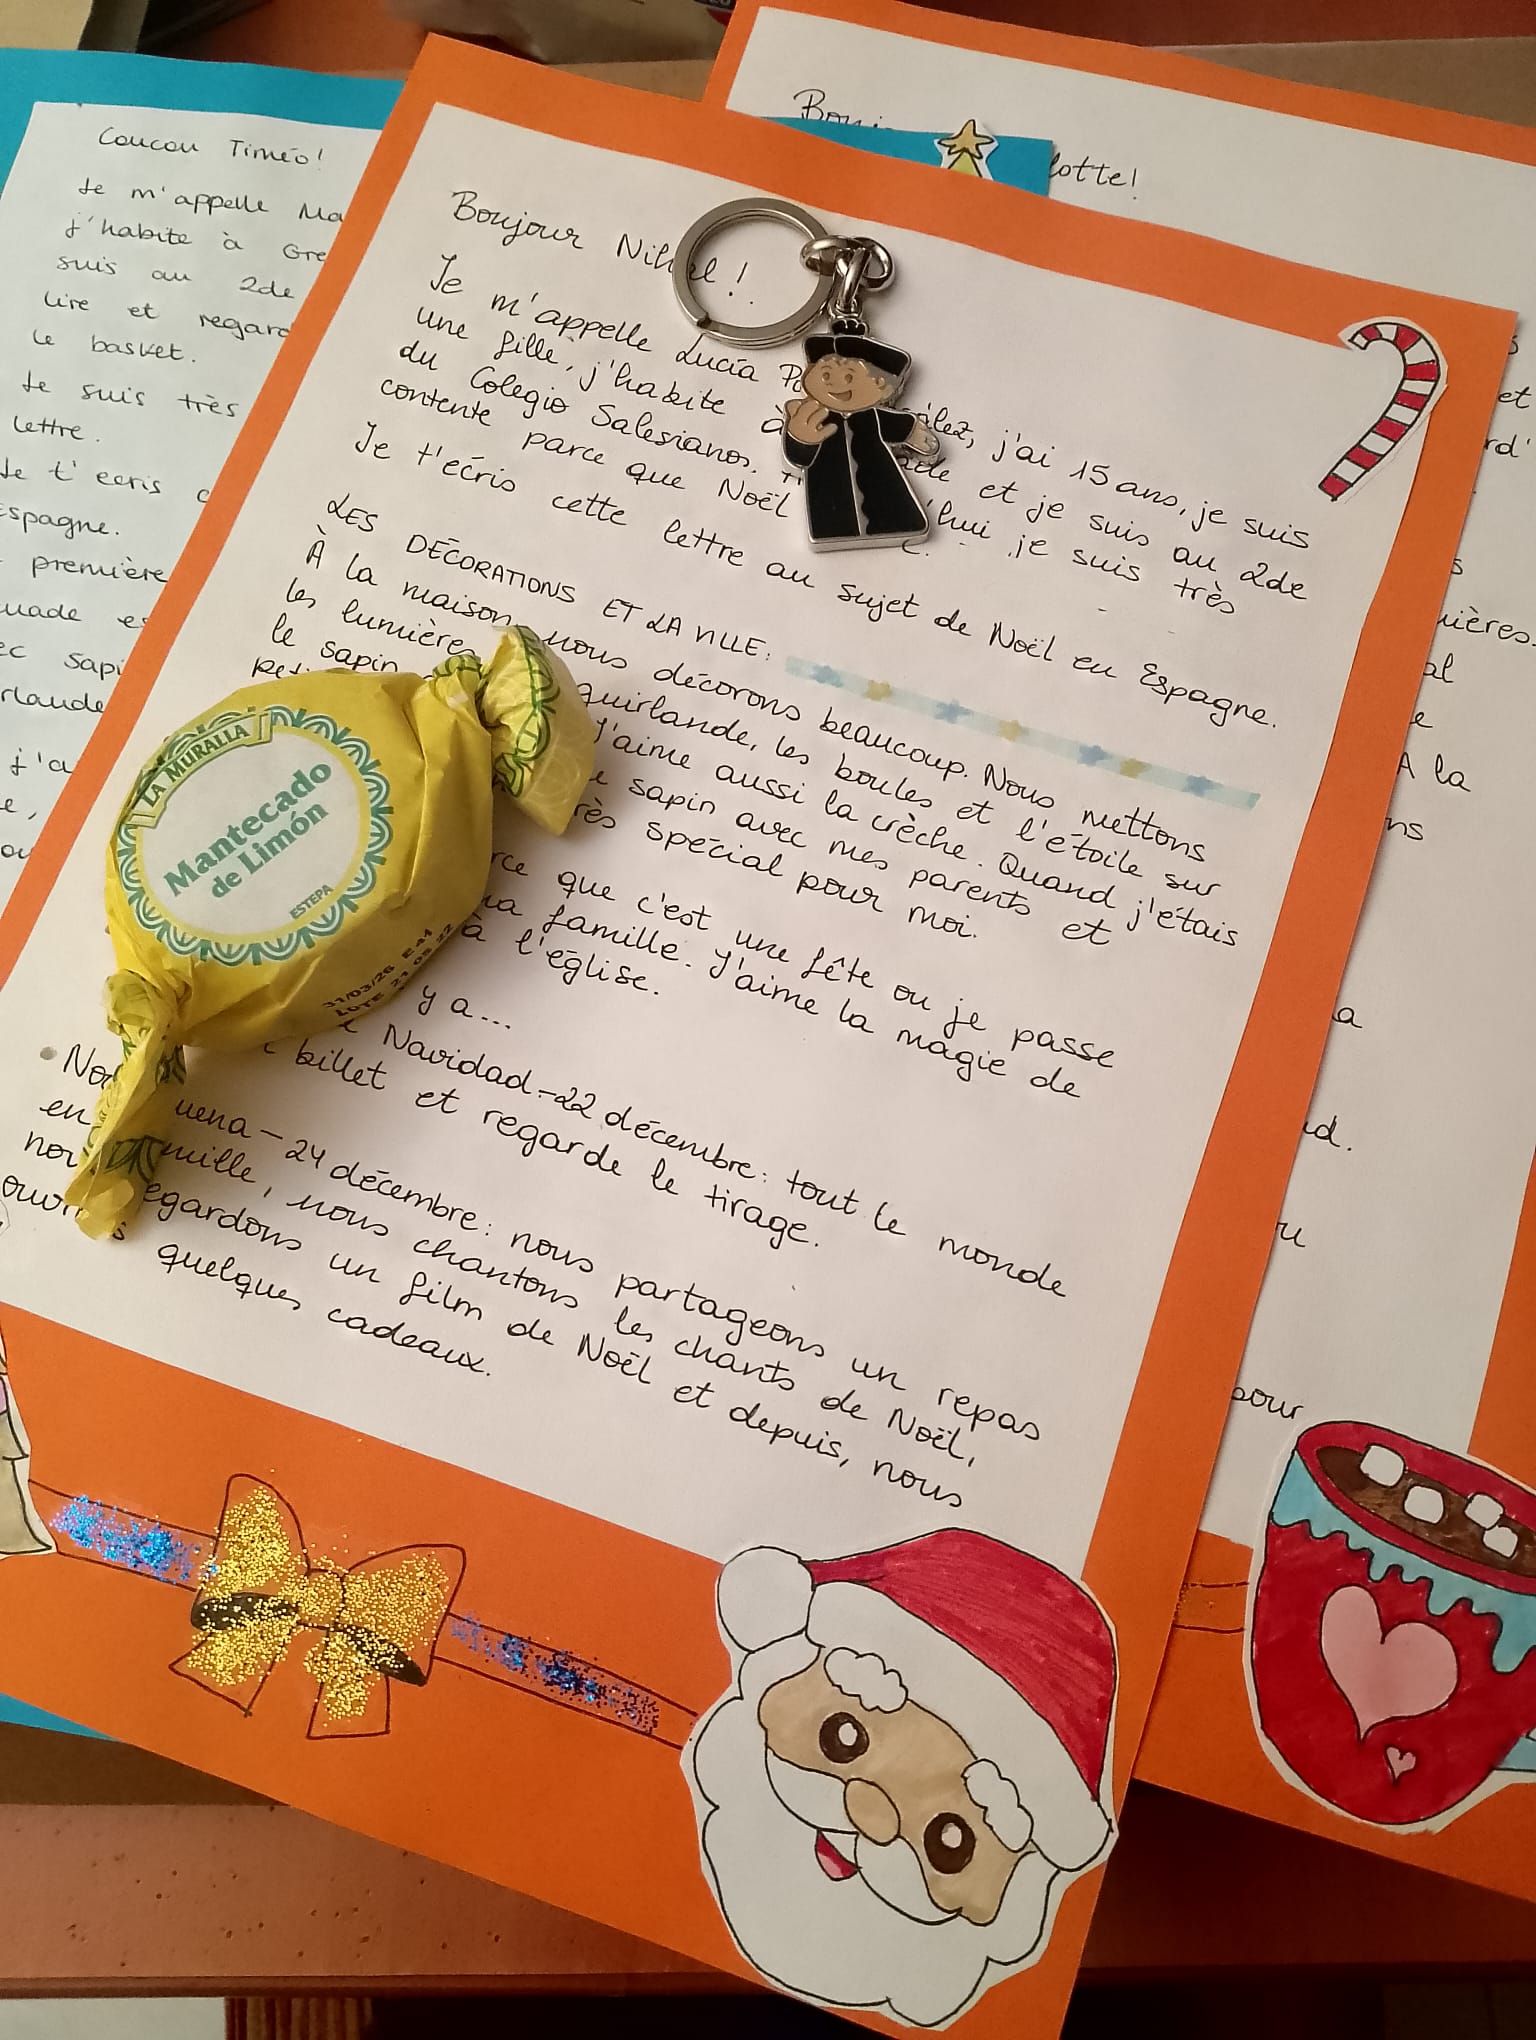 Coucou Timéo!
Je m'appelle Ma
j'habite à Gre
suis au 2de
lire et regard
le basket.
Je suis très
lettre.
Je t'ecris
Espagne.
première
sapi
j'a
Bonj
lotte!
Bonjour Nihel!
Je m'appelle Lucía
ález, j'ai 15 ans, je suis
une fille, j'habite à
ade et je suis au 2de
du Colegio Salesianos.
'hui je suis très
contente parce que Noël
Je t'ecris cette lettre au sujet de Noël en Espagne.
LES DÉCORATIONS ET LA VILLE:
À la maison, nous décorons beaucoup. Nous mettons
les lumières
guirlande, les boules et l'étoile sur
le sapin
J'aime aussi la crèche. Quand j'étais
peti
sapin avec mes parents et
rès spécial pour moi.
rce que c'est une fête ou je passe
famille. J'aime la magie de
à l'église.
y a...
Navidad-22 décembre: tout le monde
billet et regarde le tirage.
• No
uena-24 décembre: nous partageons un repas
en
mille, nous chantons les chants de Noël,
nou
egardons un film de Noël et depuis, nous
ouvr
s quelques cadeaux.
LA MURALLA
Mantecado
de Limón
ESTEPA
31/03/26
LOTE
et
rd'
s
ières.
al
e
A la
ns
a
d.
u
pour